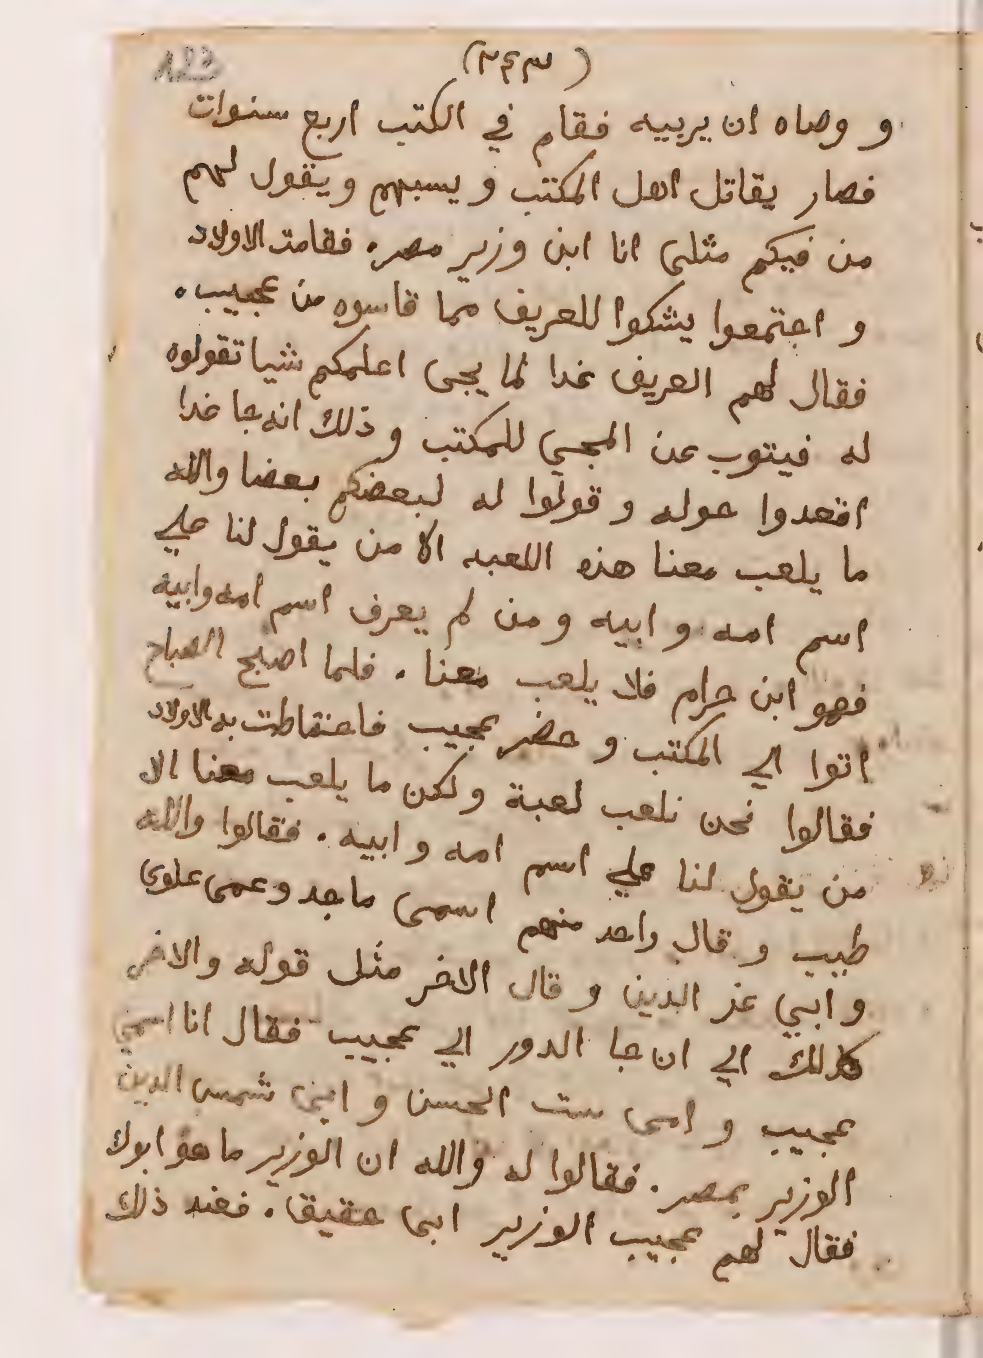 (٢٤٣)
123
و وصاه ان يربيه فقام في الكتب اربع سنوات
فصار يقاتل اهل المكتب ويسبهم ويقول لهم
من فيكم مثلى انا ابن وزير مصر. فقامت الاولاد
و اجتمعوا يشكوا للعريف مما قاسوه من عجيب.
فقال لهم العريف غدا لما يجى اعلمكم شيا تقولوه
له فيتوب عن المجي للمكتب و ذلك انه جا غدا
اقعدوا حوله و قولوا له لبعضكم بعضا والله
ما يلعب معنا هذه اللعبه الا من يقول لنا علي
اسم امه و ابيه و من لم يعرف اسم امه وابيه
فهو ابن حرام فلا يلعب معنا. فلما اصبح الصباح
اتوا الي المكتب و حضر عجيب فاحتاطت به الاولاد
فقالوا نحن نلعب لعبة ولكن ما يلعب معنا الا
من يقول لنا علي اسم امه و ابيه. فقالوا والله
طيب و قال واحد منهم اسمى ماجد وعمى علوى
و ابي عز الدين و قال الاخر مثل قوله والاخر
كذلك الي ان جا الدور الي عجيب فقال انا اسمي
عجيب و امى ست الحسن و ابى شمس الدين
الوزير بمصر. فقالوا له والله ان الوزير ما هو ابوك
فقال لهم عجيب الوزير ابى حقيق. فعند ذلك